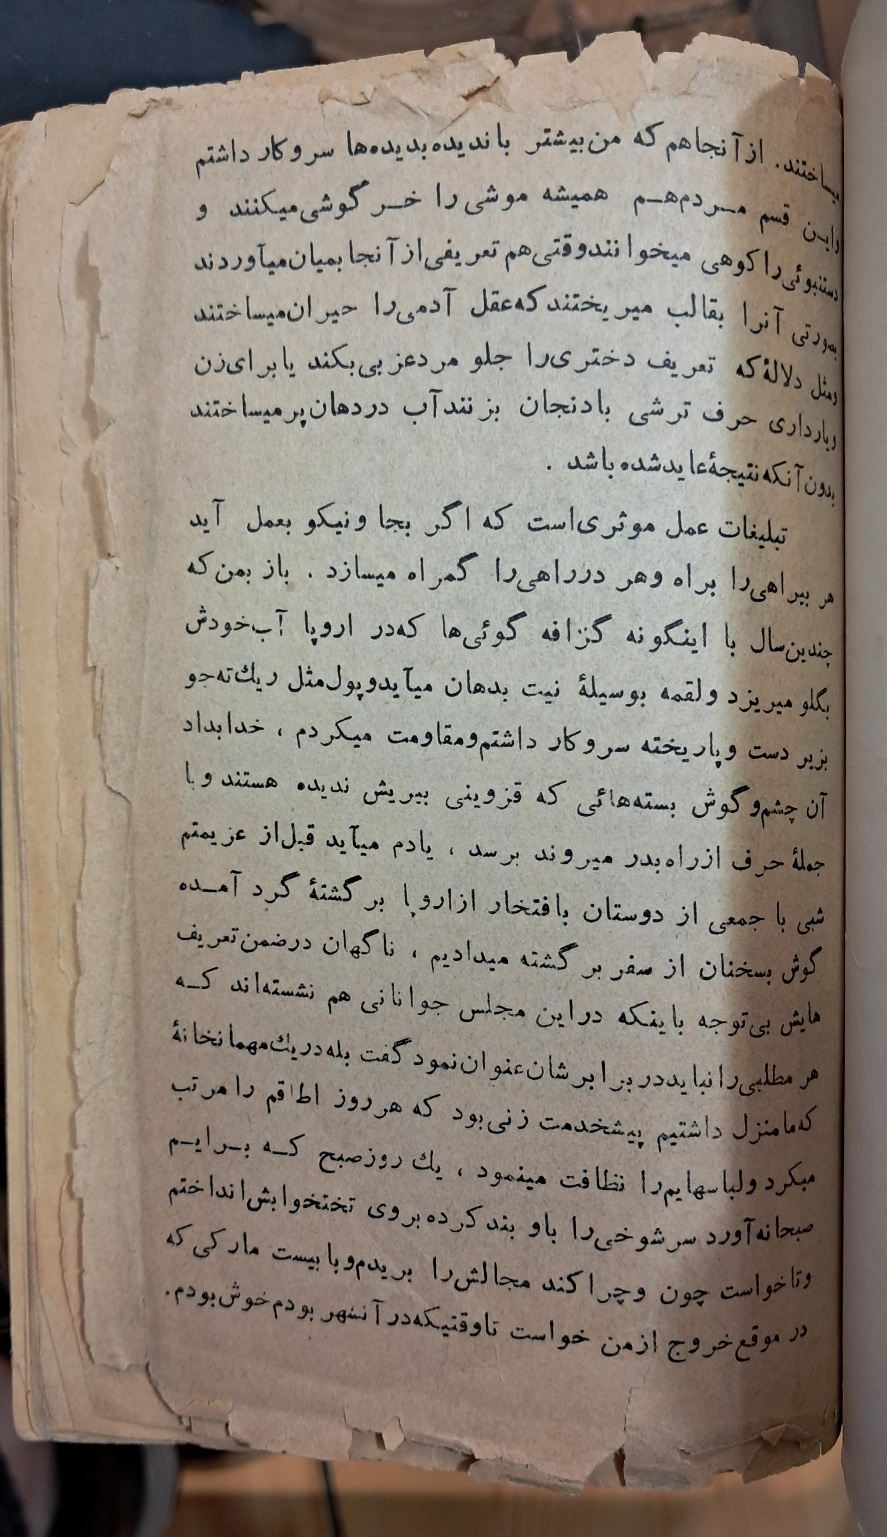 میساختند. ازآنجاهم که من‌بیشتر باندیده‌بدیده‌ها سروکار داشتم
واین قسم مردم‌هم همیشه موشی را خرگوشی‌میکنند و
دستنبوئی‌راکوهی میخوانندوقتی‌هم تعریفی‌ازآنجابمیان‌میآوردند
بصورتی آنرا بقالب میریختندکه‌عقل آدمی‌را حیران‌میساختند
ومثل دلالهٔ‌که تعریف دختری‌را جلو مردعزبی‌بکند یابرای‌زن
وبارداری حرف ترشی بادنجان بزنندآب دردهان‌پرمیساختند
بدون‌آنکه‌نتیجهٔ‌عایدشده‌باشد .
تبلیغات عمل موثری‌است که اگر بجا ونیکو بعمل آید
هر بیراهی‌را براه وهر درراهی‌را گمراه میسازد . باز بمن‌که
چندین‌سال با اینگونه گزافه گوئی‌ها که‌در اروپا آب‌خودش
بگلو میریزد ولقمه بوسیلهٔ نیت بدهان میآیدوپول‌مثل ریك‌ته‌جو
بزیر دست وپاریخته سروکار داشتم‌ومقاومت میکردم ، خدابداد
آن چشم‌وگوش بسته‌هائی که قزوینی بیریش ندیده هستند وبا
جملهٔ حرف ازراه‌بدر میروند برسد ، یادم میآید قبل‌از عزیمتم
شبی با جمعی از دوستان بافتخار ازاروپا برگشتهٔ گرد آمده
گوش بسخنان از سفر برگشته میدادیم ، ناگهان درضمن‌تعریف
هایش بی‌توجه باینکه دراین مجلس جوانانی هم نشسته‌اند که
هر مطلبی‌را نبایددربرابرشان‌عنوان‌نمود گفت بله‌دریك‌مهمانخانهٔ
که‌مامنزل داشتیم پیشخدمت زنی‌بود که هرروز اطاقم را مرتب
میکرد ولباسهایم‌را نظافت مینمود ، یك روزصبح که برایم
صبحانه‌آورد سرشوخی‌را باو بندکرده‌بروی تختخوابش‌انداختم
وتاخواست چون وچراکند مجالش‌را بریدم‌وبابیست مارکی که
در موقع‌خروج ازمن خواست تاوقتیکه‌درآنشهر بودم‌خوش‌بودم.